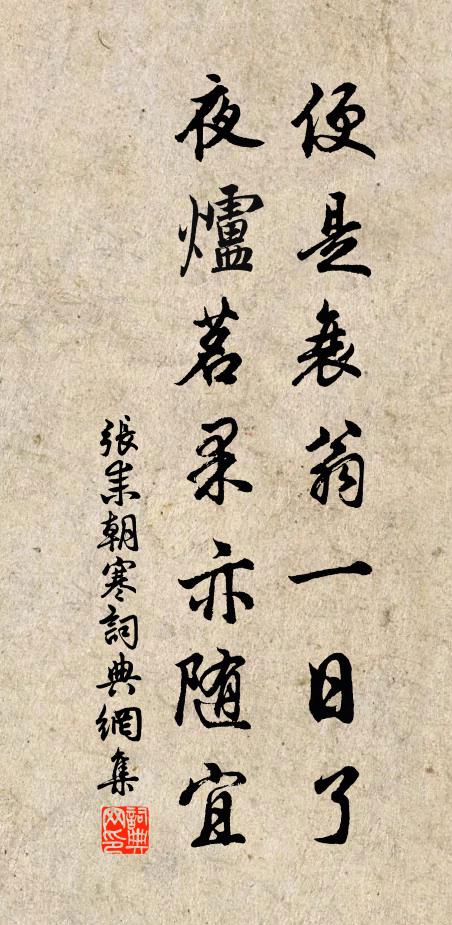 便是衰翁一日了
夜爐茗果亦随宜
張耒朝寒詞典網集
詞典网印